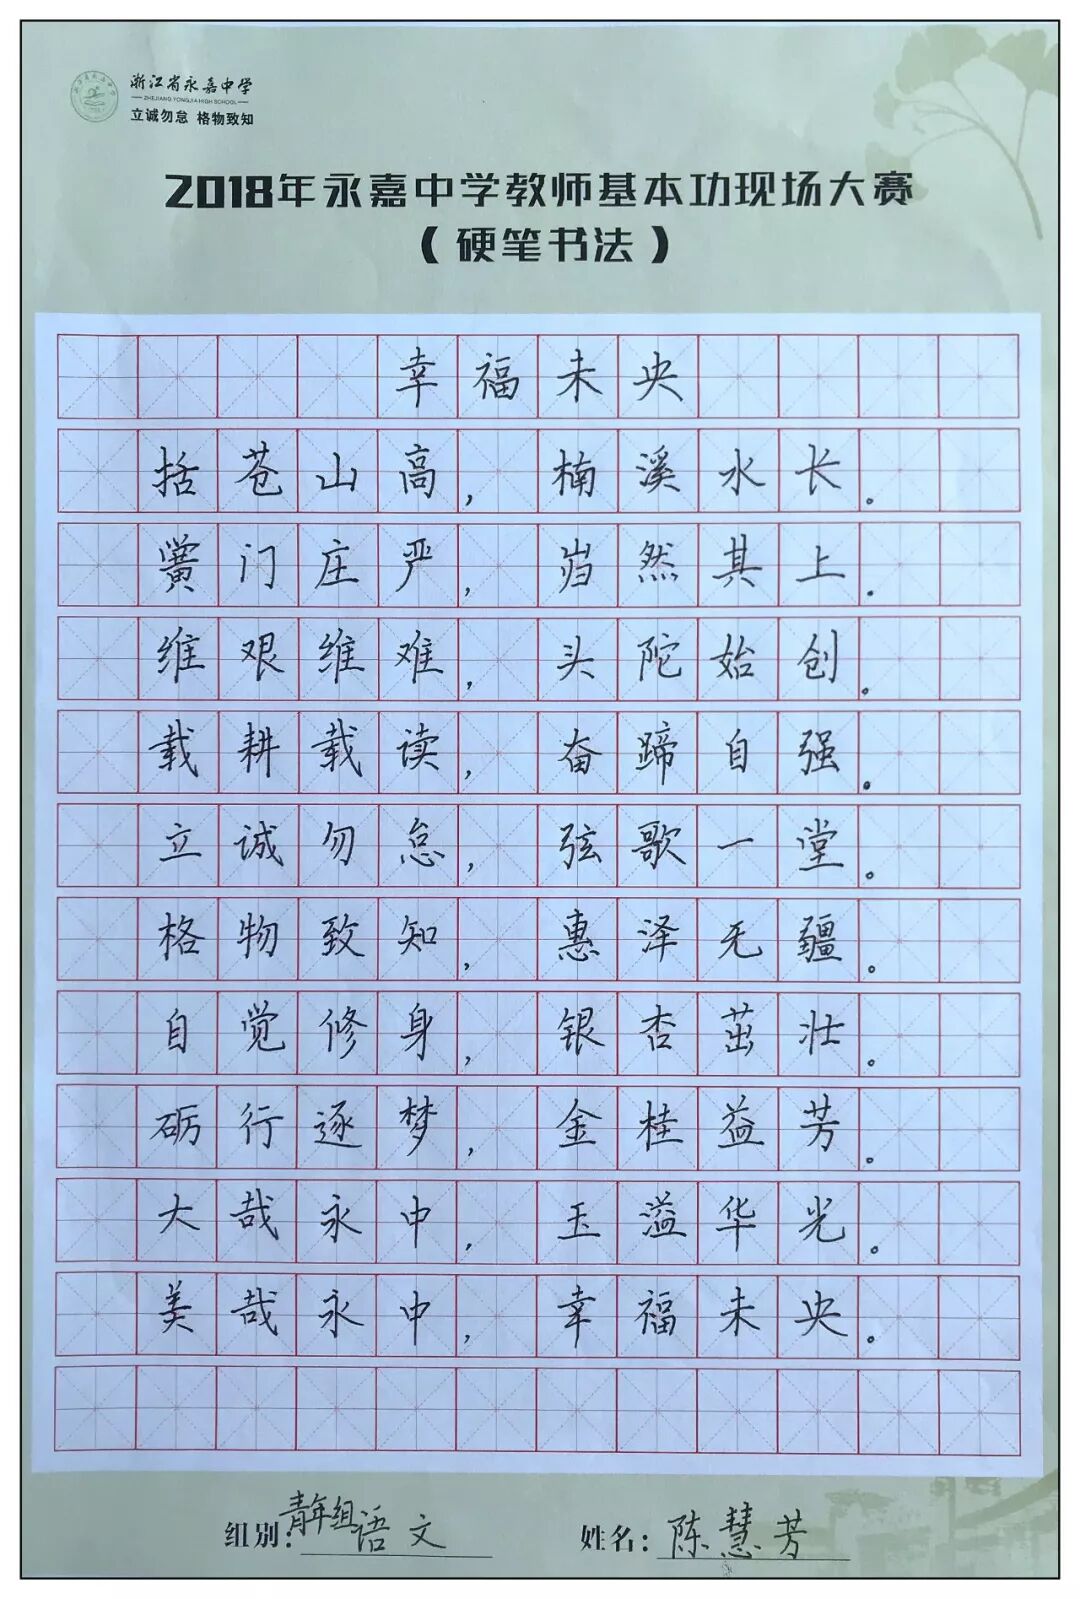 浙江省永嘉中学
ZHEJIANG YONGJIA HIGH SCHOOL
立诚勿怠 格物致知
2018年永嘉中学教师基本功现场大赛
（硬笔书法）
幸福未央
括苍山高，楠溪水长。
黉门庄严，岿然其上。
维艰维难，头陀始创。
载耕载读，奋蹄自强。
立诚勿怠，弦歌一堂。
格物致知，惠泽无疆。
自觉修身，银杏茁壮。
砺行逐梦，金桂益芳。
大哉永中，玉溢华光。
美哉永中，幸福未央。
组别：青年组语文 姓名：陈慧芳